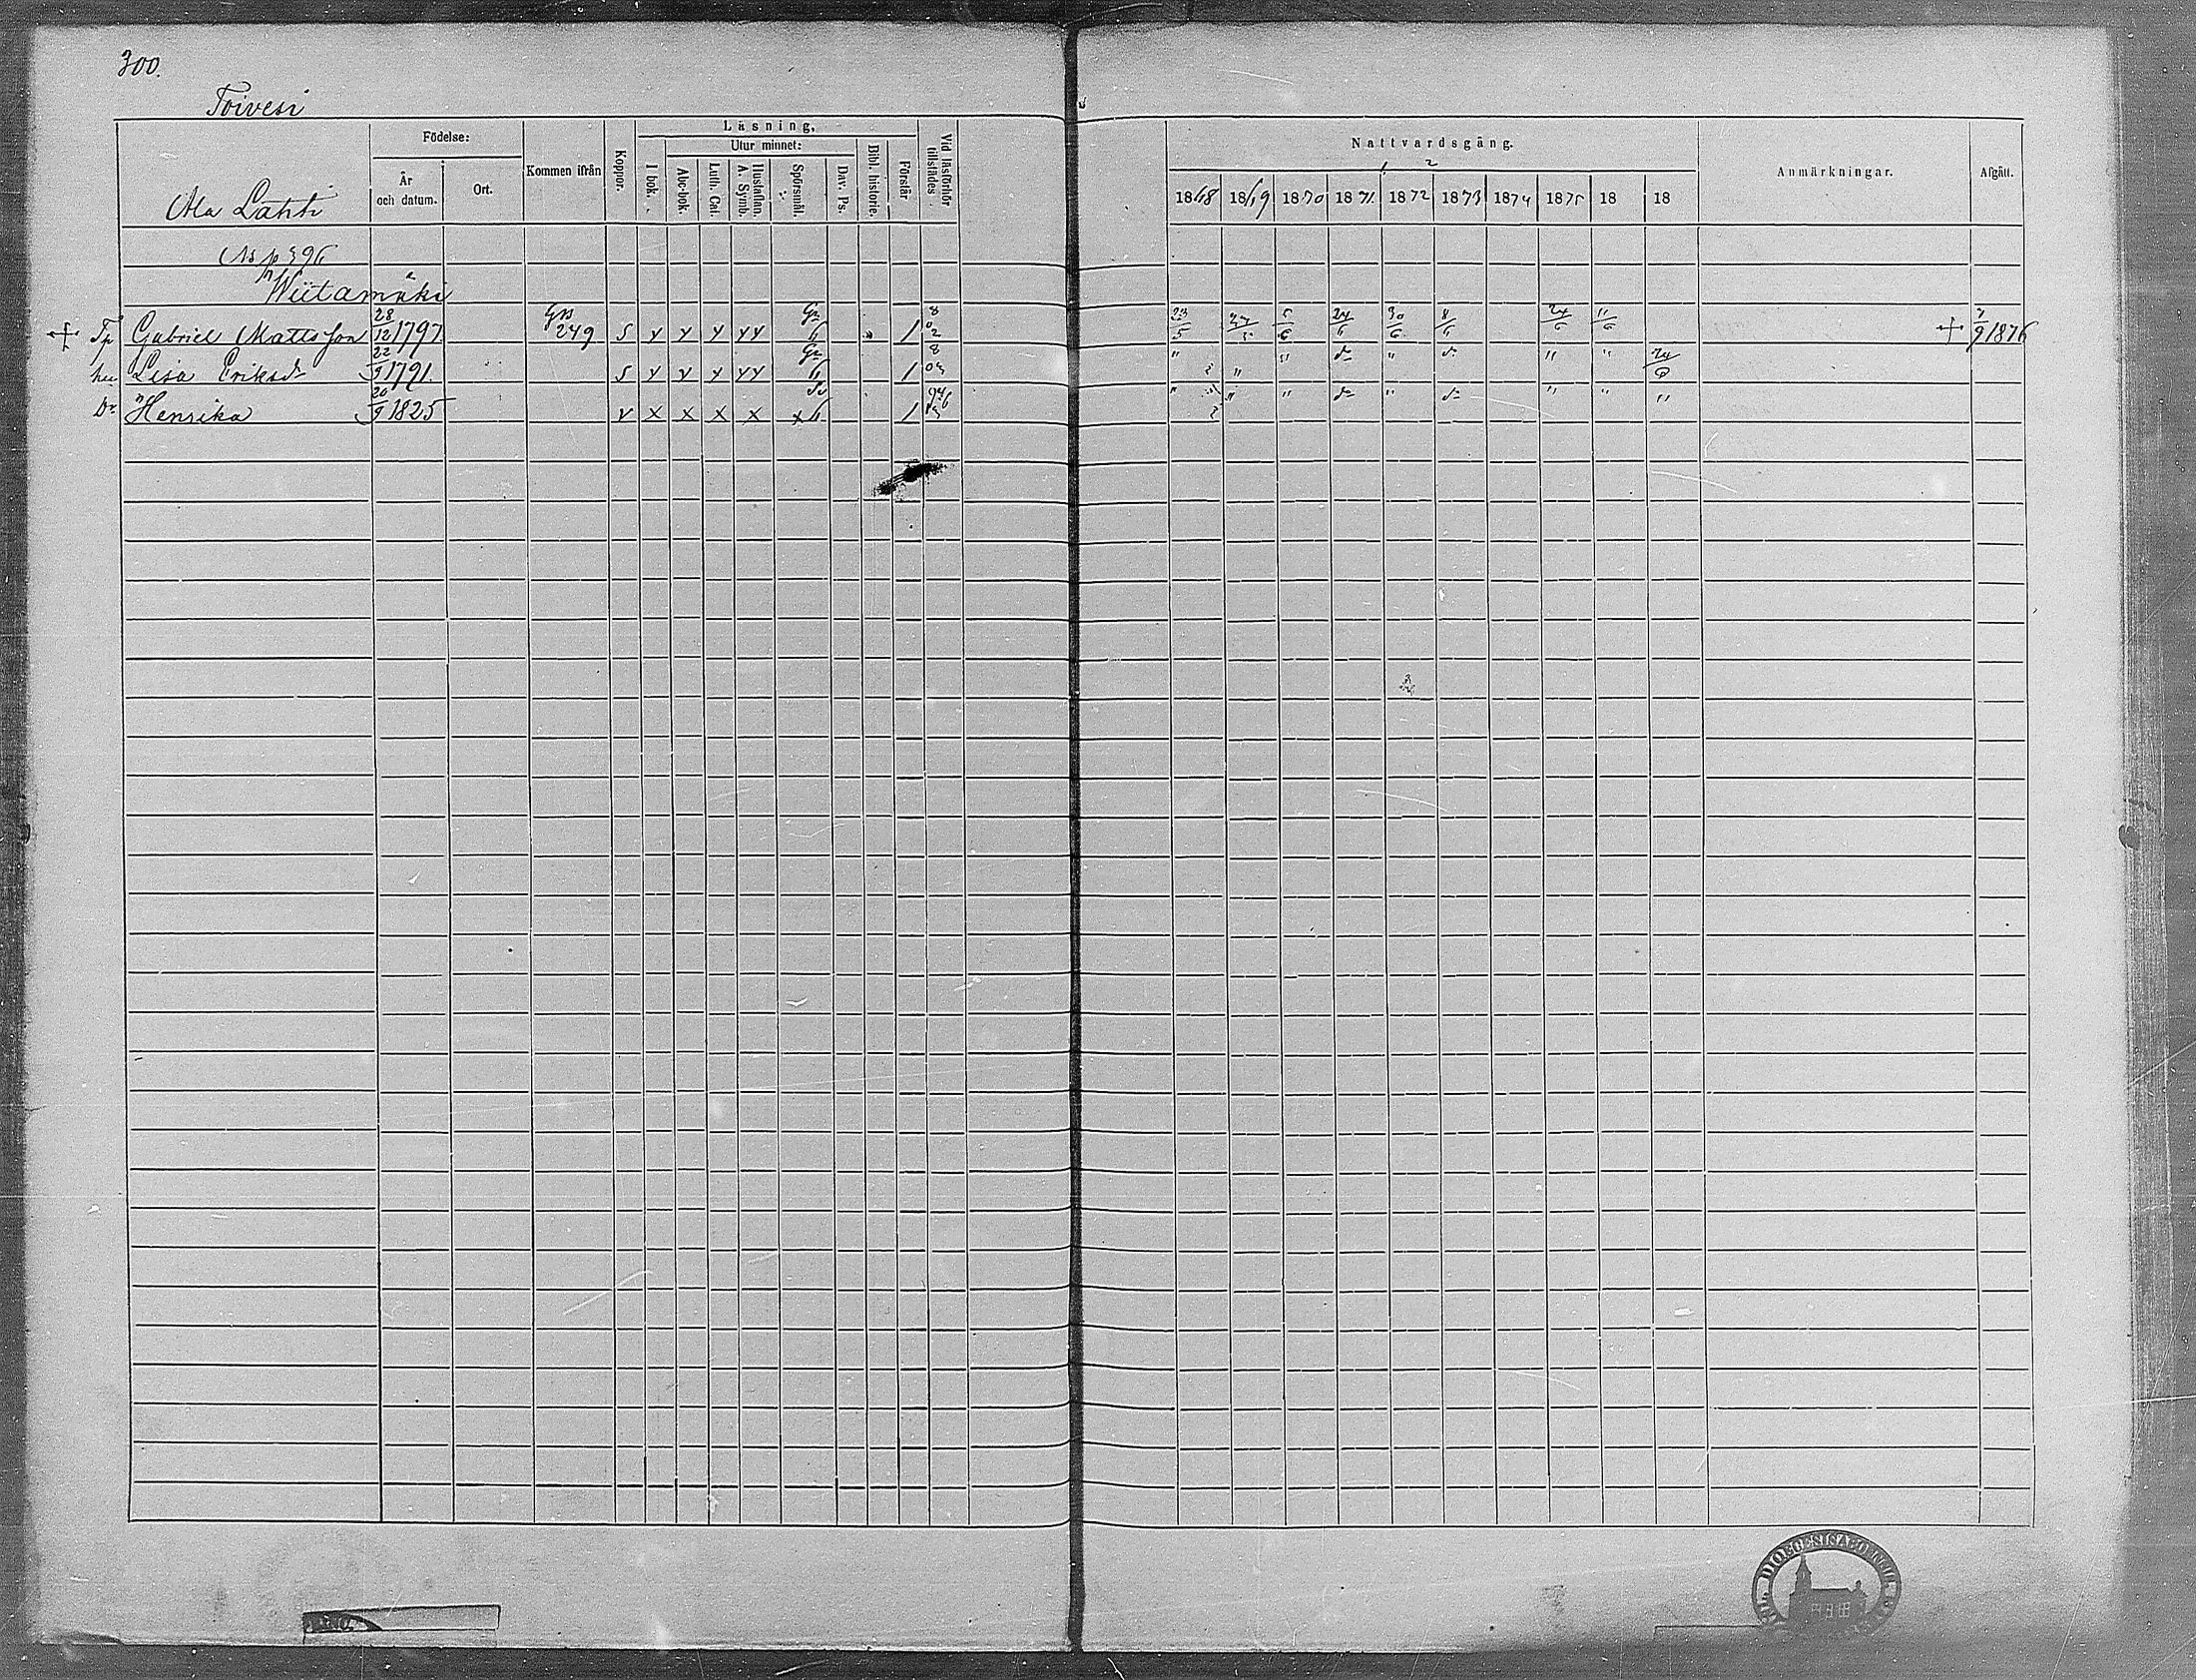 300.
Toivesi
Ala Lahti
Födelse:
År och datum.
Ort.
Kommen ifrån
Koppor.
Läsning,
I bok.
Utur minnet:
Abc-bok.
Luth. Cat.
Hustaflan. A. Symb.
Spörsmål.
Dav. Ps.
Bibl. historie.
Förstår
Vid läsförhör tillstädes
Nattvardsgång.
1868 1869 1870 1871 1872 1873 1874 1875 18 18
Anmärkningar.
Afgått.
Ns p 396
Wiitamäki
Gabriel Mattsson 28/12 1797. 249 s y y y yy 23/5 5/6 24/6 30/6 8/6 24/6 11/6 7/9 1876
hu Lisa Eriksdr 22/9 1791. s y y y yy " " " " " 24/6
Dr Henrika 20/9 1825 v x x x x x " " " " " " "